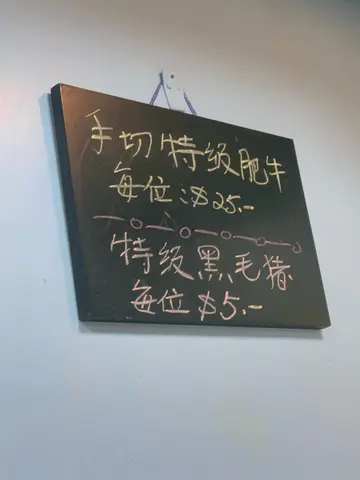 手切特级肥牛
每位:$25.-
特级黑毛猪
每位$5.-